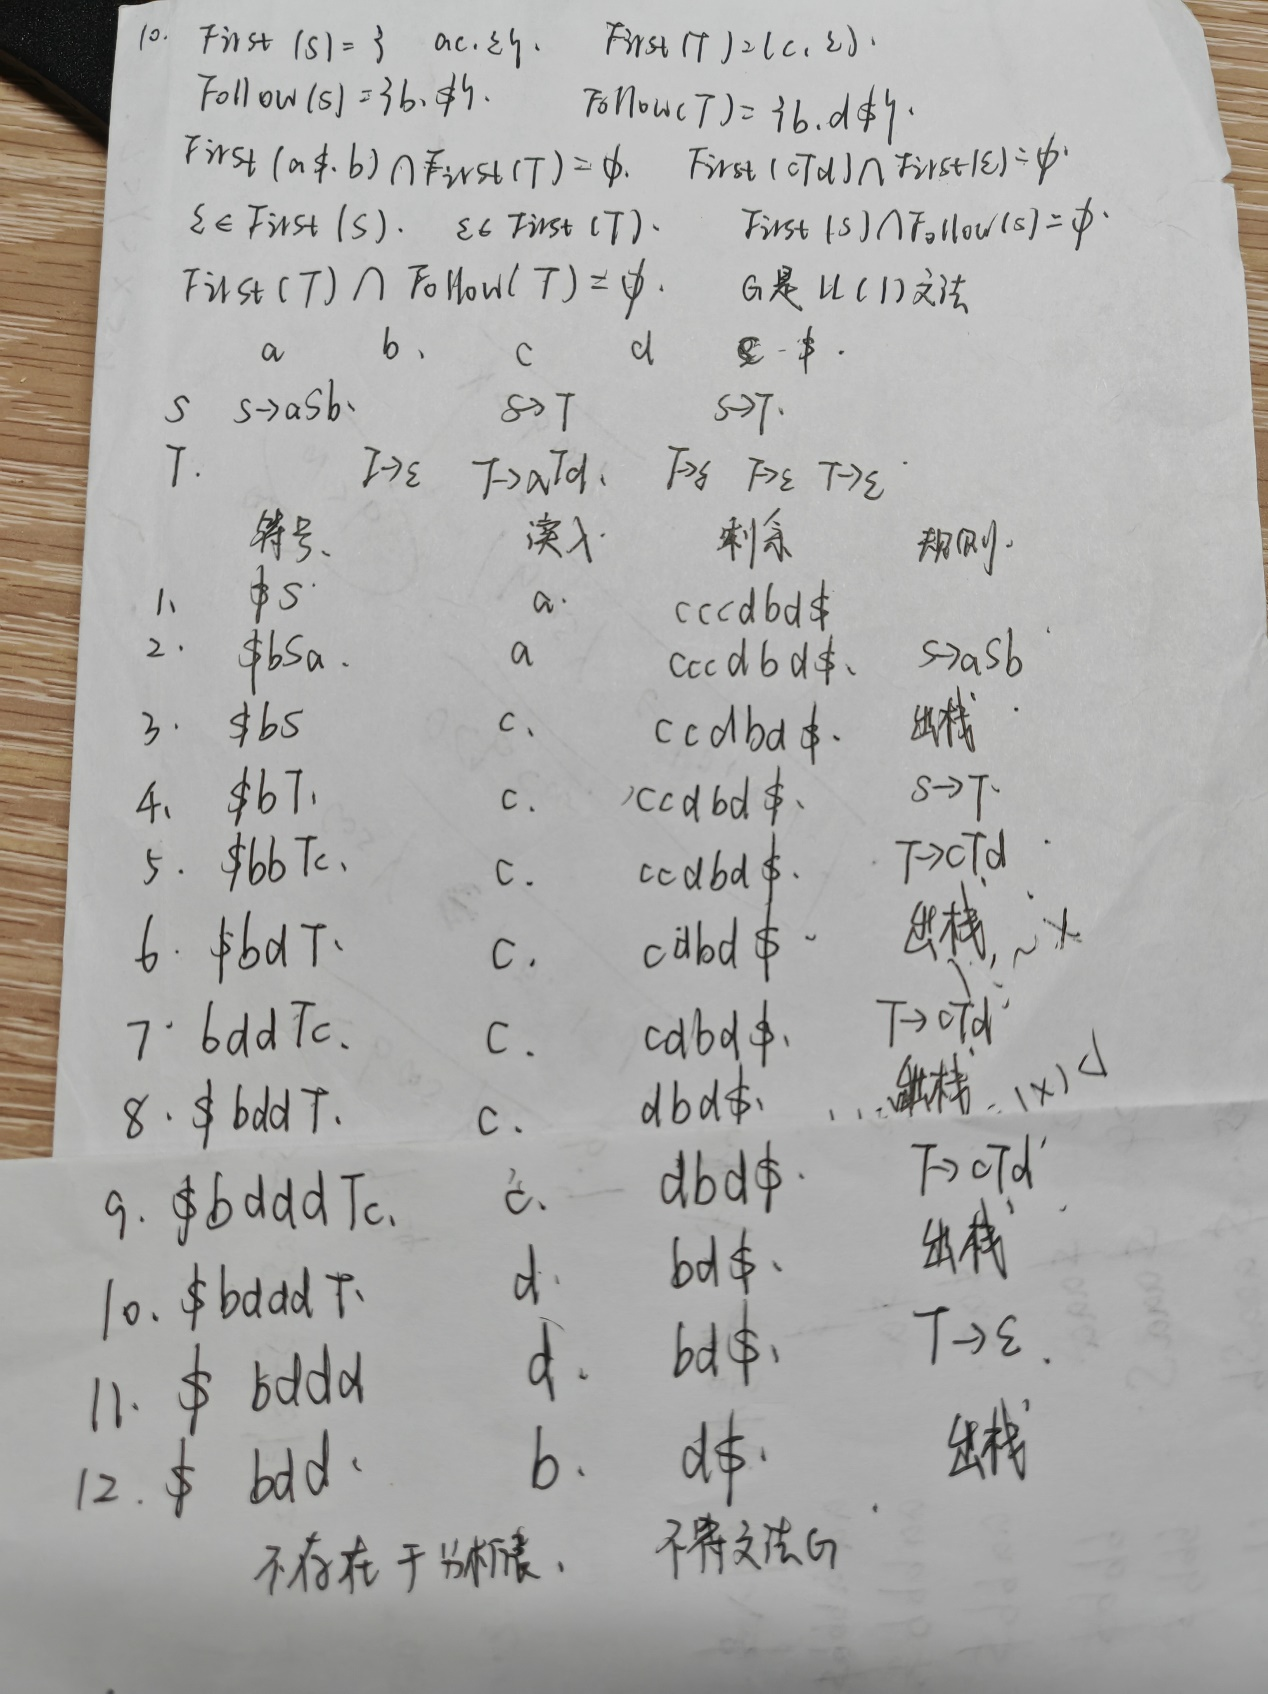 10. First (S) = { a c. ε}. First (T) = (c. ε).
Follow(S) = {b. $}. Follow(T) = {b. d $}.
First (a $. b) ∩ First(T) = ϕ. First(cTd) ∩ First(ε) = ϕ.
ε ∈ First (S). ε ∈ First (T). First (S) ∩ Follow(S) = ϕ.
First(T) ∩ Follow(T) = ϕ. G是 LL(1)文法
a b、 c d $.
S S→aSb、 S→T S→T.
T. T→ε T→aTd、 T→ε T→ε T→ε
符号、 读入 剩余 规则.
1、 $S a. cccdbd$
2. $bSa. a cccdbd$、 S→aSb
3. $bS c、 ccdbd$. 出栈
4、 $bT、 c. ccdbd$、 S→T.
5. $bbTc、 c. ccdbd$. T→cTd
6. $bdT、 c. cdbd$ 出栈、~x
7. bddTc、 c. cdbd$、 T→cTd
8. $bddT. c. dbd$、 ...出栈..(x)
9. $bdddTc、 c. dbd$. T→cTd
10、$bdddT、 d. bd$、 出栈
11. $ bddd d. bd$、 T→ε.
12. $ bdd、 b. d$. 出栈
不存在于分析表、 不符文法G